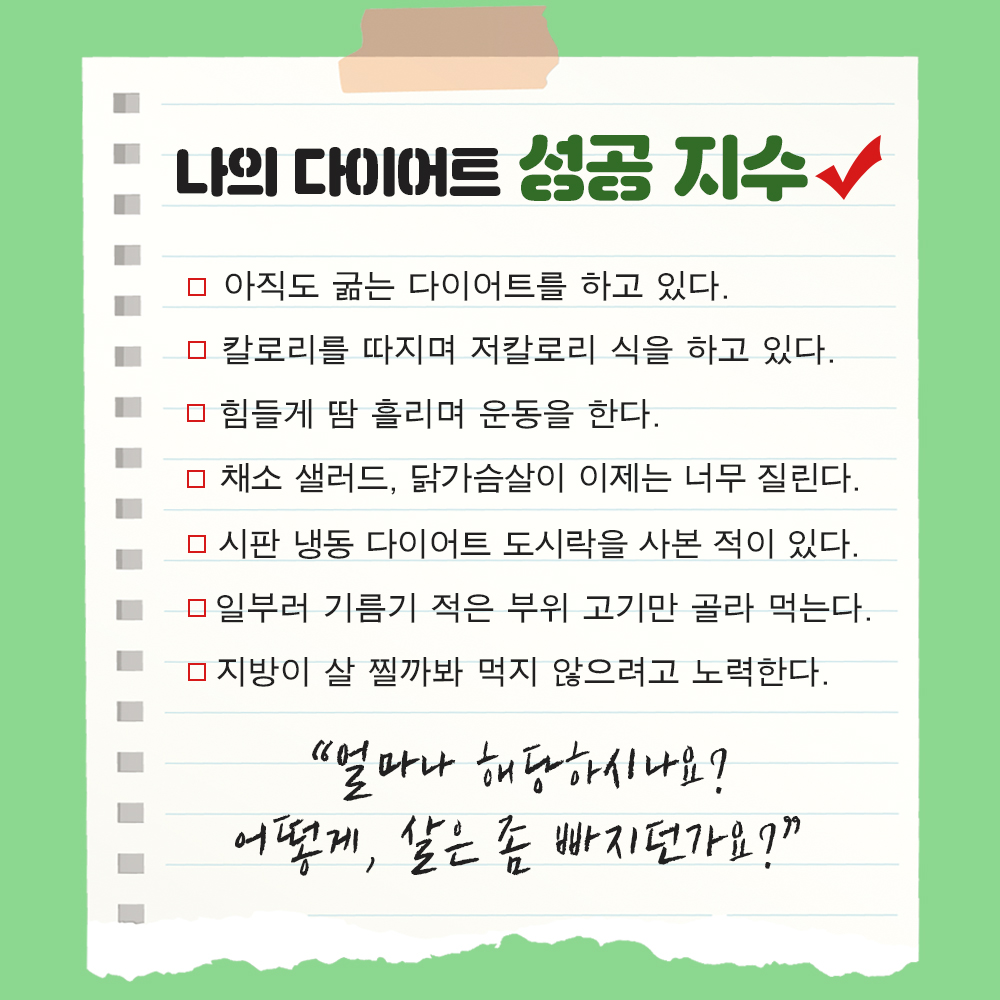 나의 다이어트 성공 지수
아직도 굶는 다이어트를 하고 있다.
칼로리를 따지며 저칼로리 식을 하고 있다.
힘들게 땀 흘리며 운동을 한다.
채소 샐러드, 닭가슴살이 이제는 너무 질린다.
시판 냉동 다이어트 도시락을 사본 적이 있다.
일부러 기름기 적은 부위 고기만 골라 먹는다.
지방이 살 찔까봐 먹지 않으려고 노력한다.
“얼마나 해당하시나요?
어떻게, 살은 좀 빠지던가요?”